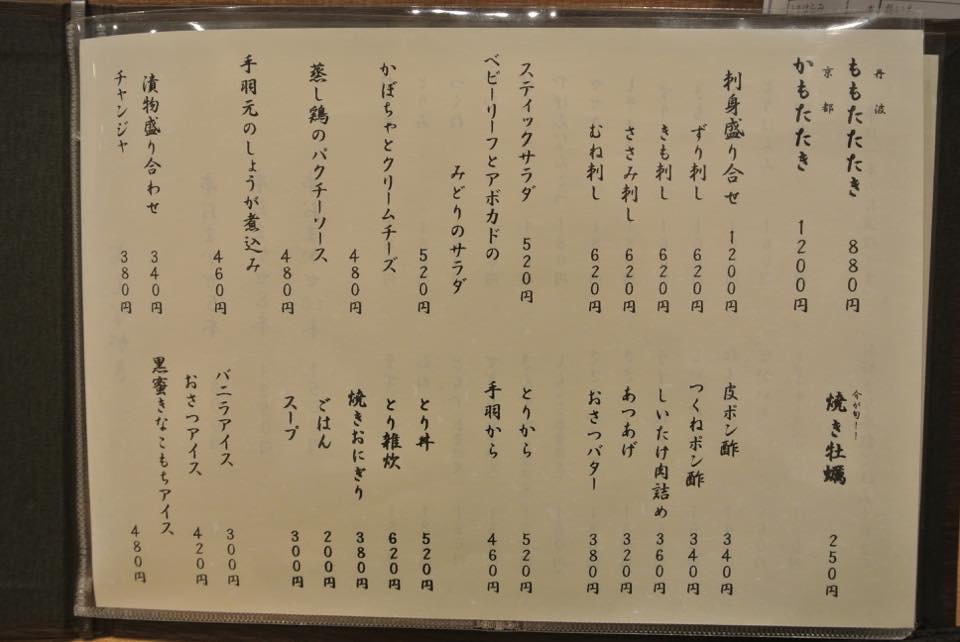 丹波
ももたたき 880円
京都
かもたたき 1200円
刺身盛り合せ 1200円
ずり刺し 620円
きも刺し 620円
ささみ刺し 620円
むね刺し 620円
スティックサラダ 520円
ベビーリーフとアボカドの
みどりのサラダ 520円
かぼちゃとクリームチーズ 480円
蒸し鶏のパクチーソース 480円
手羽元のしょうが煮込み 460円
漬物盛り合わせ 340円
チャンジャ 380円
今が旬!!
焼き牡蠣 250円
皮ポン酢 340円
つくねポン酢 340円
しいたけ肉詰め 360円
あつあげ 320円
おさつバター 380円
とりから 520円
手羽から 460円
とり丼 520円
とり雑炊 620円
焼きおにぎり 380円
ごはん 200円
スープ 300円
バニラアイス 300円
おさつアイス 420円
黒蜜きなこもちアイス 480円